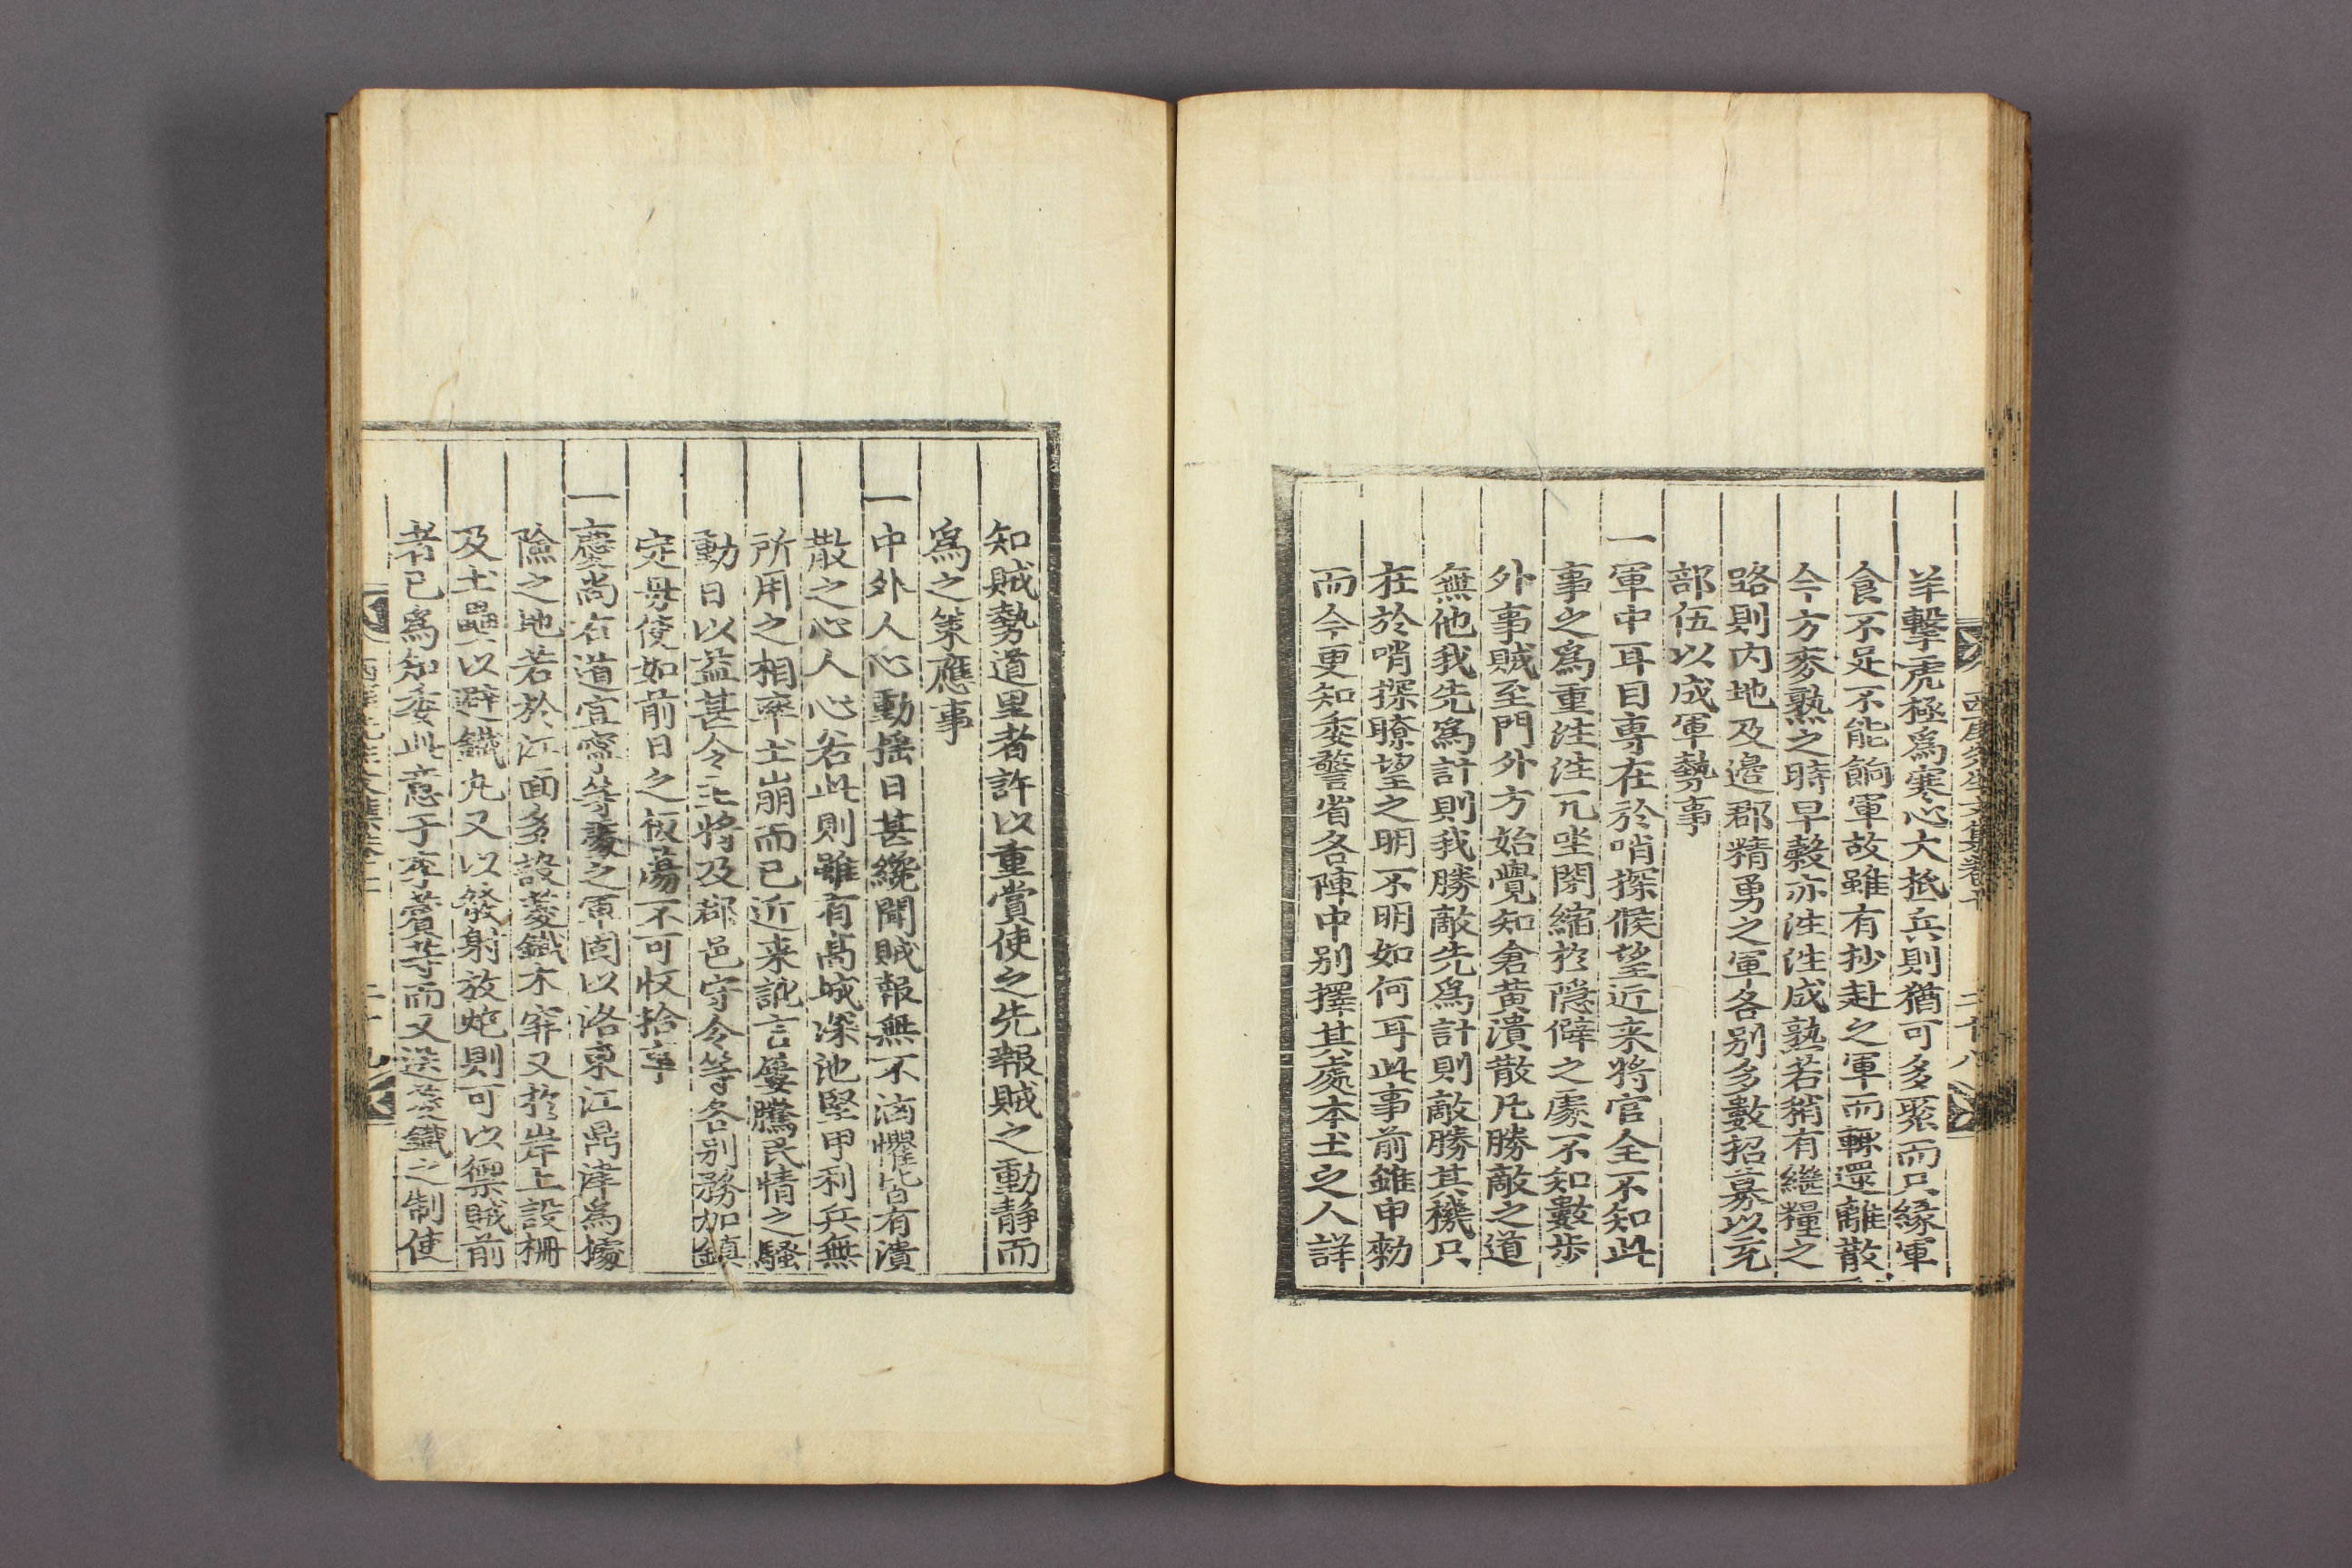 西厓先生文集卷十 二十八
羊擊虎極爲寒心大抵兵則猶可多聚而只緣軍
食不足不能餉軍故雖有抄赴之軍而輒還離散
今方麥熟之時早穀亦往往成熟若稍有繼糧之
路則內地及邊郡精勇之軍各別多數招募以充
部伍以成軍勢事
一軍中耳目專在於哨探候望近来將官全不知此
事之爲重往往兀坐閉縮於隱僻之處不知數步
外事賊至門外方始覺知倉黄潰散凡勝敵之道
無他我先爲計則我勝敵先爲計則敵勝其機只
在於哨探瞭望之明不明如何耳此事前雖申勑
而今更知委警省各陣中別擇其處本土之人詳
知賊勢道里者許以重賞使之先報賊之動靜而
爲之策應事
一中外人心動揺日甚纔聞賊報無不洶懼皆有潰
散之心人心若此則雖有高城深池堅甲利兵無
所用之相率土崩而已近来訛言屢騰民情之騷
動日以益甚令主將及郡邑守令等各別務加鎮
定毋使如前日之板蕩不可收拾事
一慶尚右道宜寧等處之軍固以洛東江鼎津爲據
險之地若於江面多設菱鐵木穽又於岸上設柵
及土壘以避鐵丸又以發射放炮則可以禦賊前
者已爲知委此意于李薲等而又送菱鐵之制使
二十九